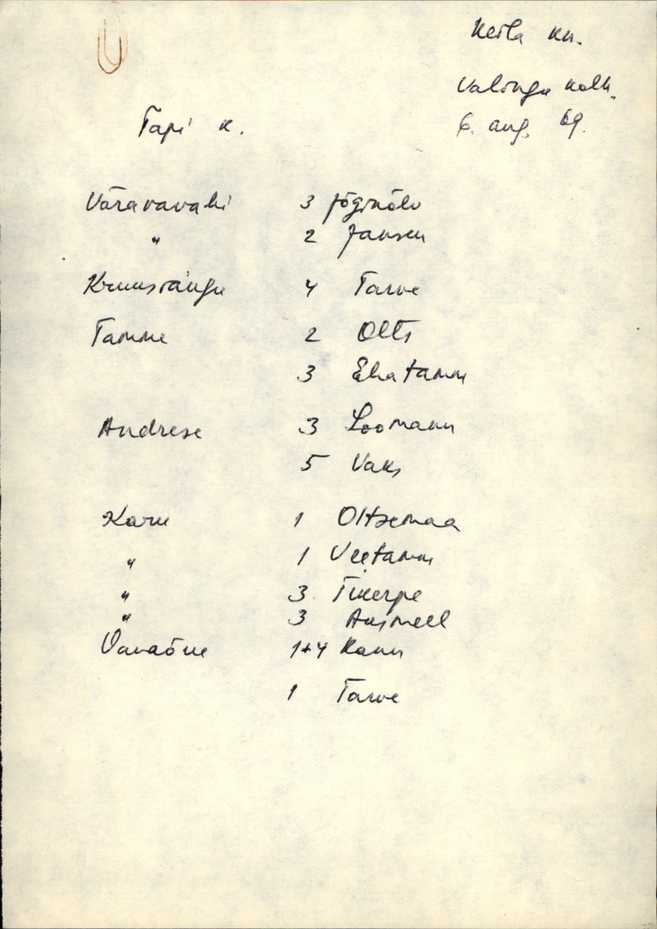 Keila kh.
Valingu kolh.
6. aug. 69.
Tapi k.
Väravavahi 3 Jõginõlv
" 2 Jansen
Kruusiaugu 4 Tarve
Tamme 2 Olts
3 Ehatamm
Andrese 3 Loomann
5 Vaks
Karu 1 Oltsemaa
" 1 Veetamm
" 3 Tikerpe
" 3 Ausmeel
Vanaõue 1+4 Kann
1 Tarve